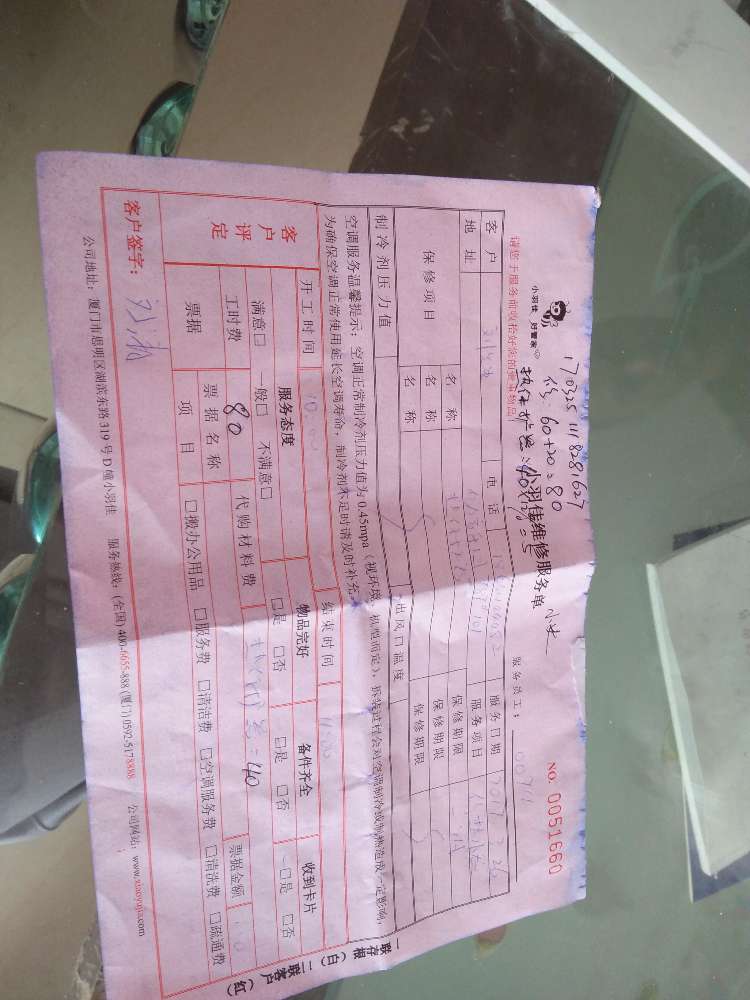 1703251118281627
修:60+20=80
小羽佳 好管家
小羽佳维修服务单 小女
服务员工:
NO. 0051660
请您于服务前收拾好您的贵重物品
客户 电话 服务日期
地址 服务项目
保修项目 名称 保修期限
名称 保修期限
名称 保修期限
制冷剂压力值 出风口温度
空调服务温馨提示:空调正常制冷剂压力值为0.45mpa(视环境、机型而定),拆装过程会对空调制冷或制热造成一定影响,
为确保空调正常使用延长空调寿命,制冷剂不足时请及时补充。
开工时间 10:00 结束时间 11:00
客户评定 服务态度 物品完好 备件齐全 收到卡片
满意□ 一般□ 不满意□ □是 □否 □是 □否 □是 □否
工时费 80 代购材料费 =40 票据金额
票据 票据名称
项目 □搬办公用品 □服务费 □清洁费 □空调服务费 □清洗费 □疏通费
客户签字:
公司地址:厦门市思明区湖滨东路319号D幢小羽佳 服务热线:(全国)400-6655-888 (厦门)0592-5178888 公司网站:www.xiaoyujia.com
一联存根(白) 二联客户(红)